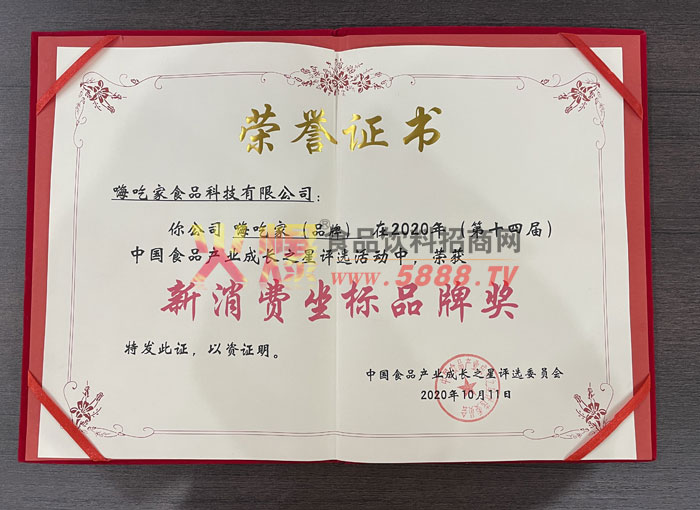 荣誉证书
嗨吃家食品科技有限公司：
你公司 嗨吃家（品牌） 在2020年（第十四届）
中国食品产业成长之星评选活动中，荣获
新消费坐标品牌奖
特发此证，以资证明。
中国食品产业成长之星评选委员会
2020年10月11日
火爆®食品饮料招商网
www.5888.TV